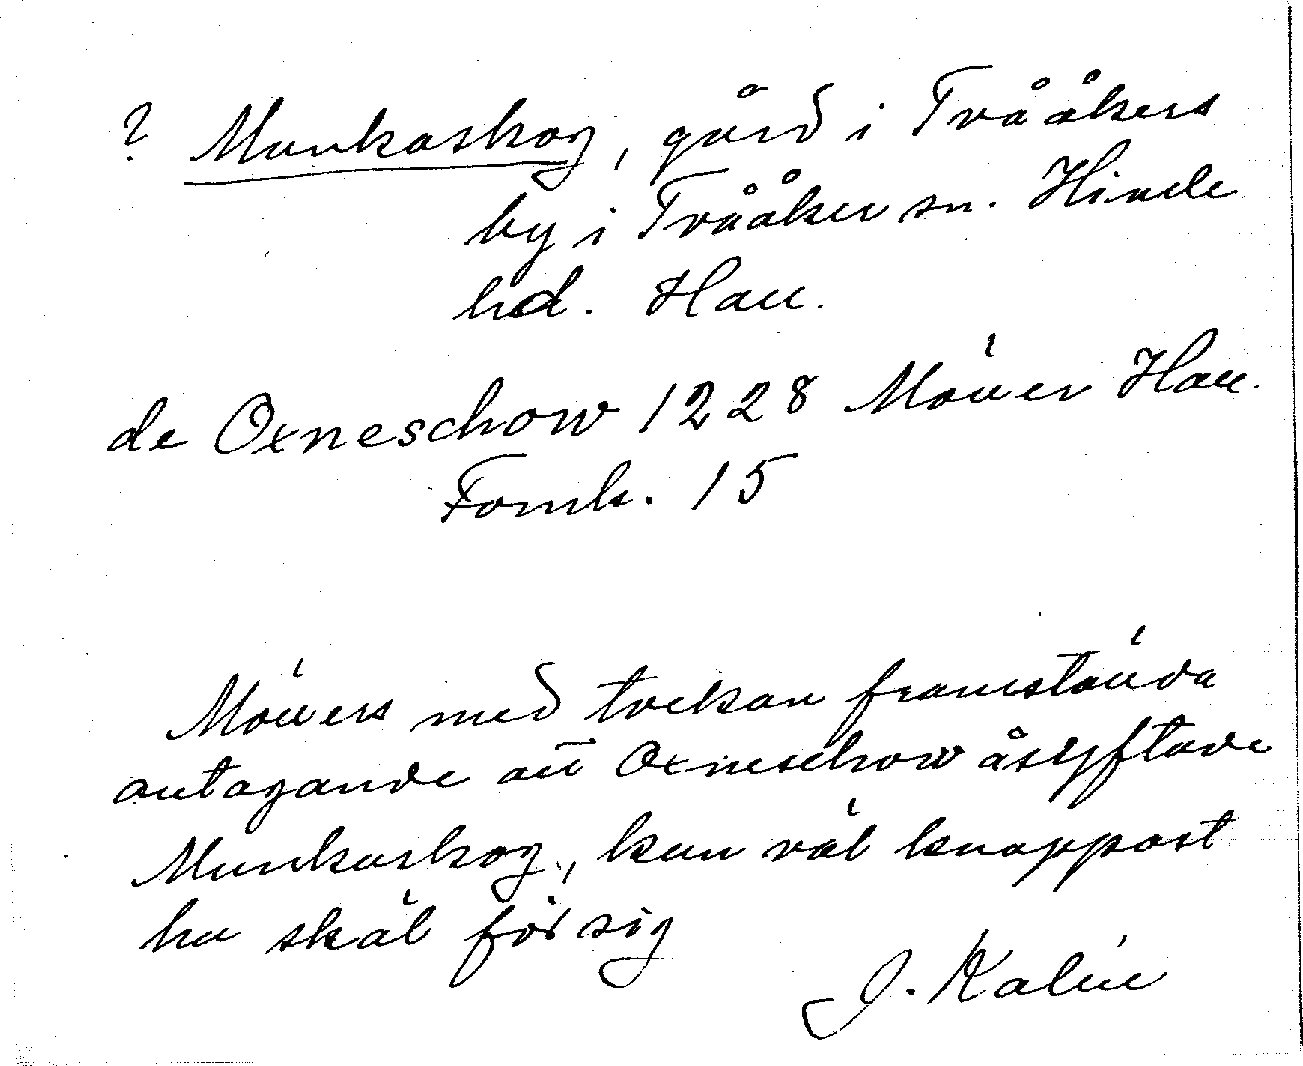 ? Munkaskog, gård i Tvååkers
by i Tvååker sn. Himle
hd. Hall.
de Oxneschow 1228 Möller Hall.
Fornh. 15
Möllers med tvekan framställda
antagande att Oxneschow åsyftade
Munkaskog, kan väl knappast
ha skäl för sig
J. Kalén